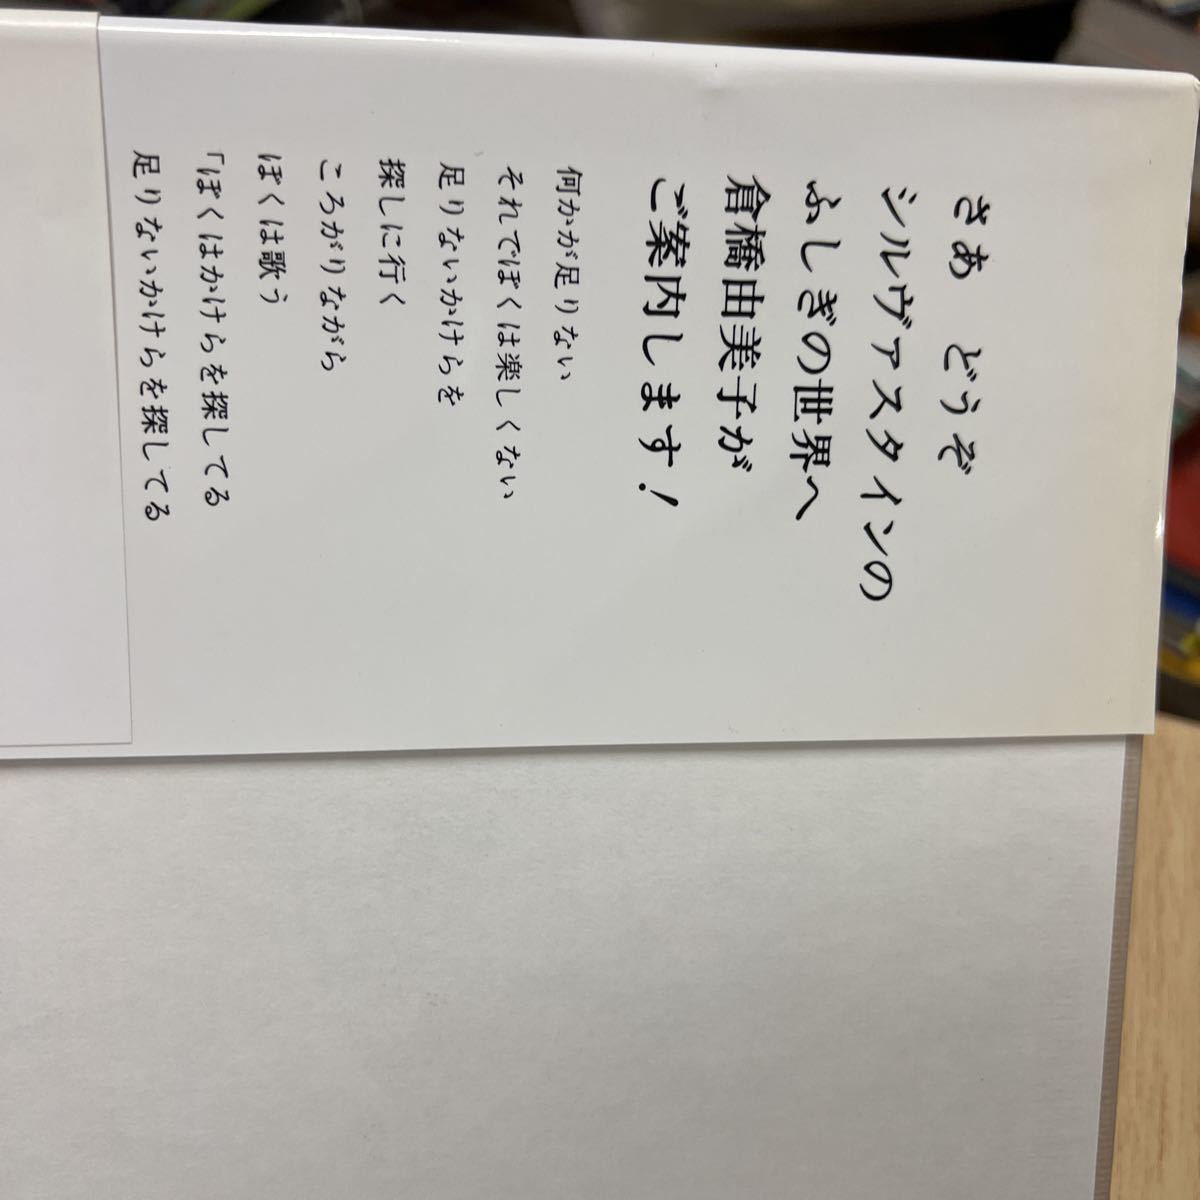 さあ　どうぞ
シルヴァスタインの
ふしぎの世界へ
倉橋由美子が
ご案内します！
何かが足りない
それでぼくは楽しくない
足りないかけらを
探しに行く
ころがりながら
ぼくは歌う
「ぼくはかけらを探してる
足りないかけらを探してる